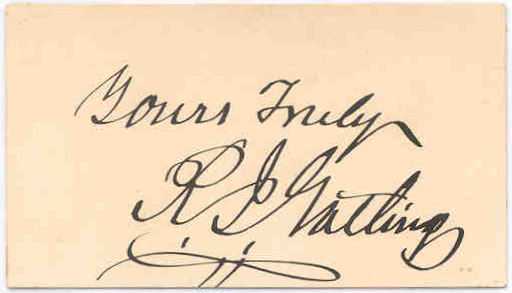 Yours Truly
R J Gatling